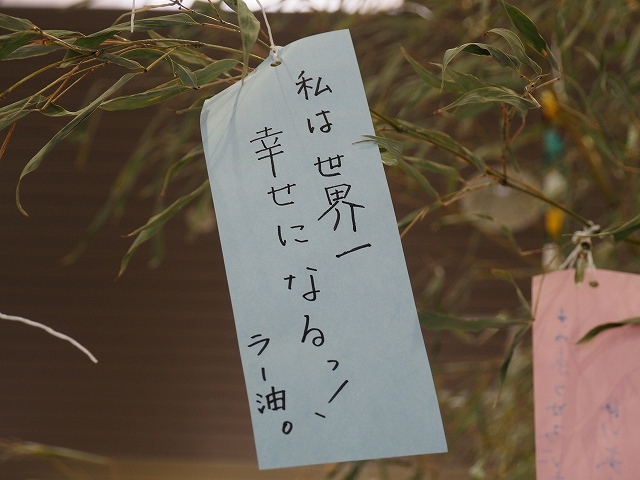 私は世界一
幸せになるっ！
ラー油。